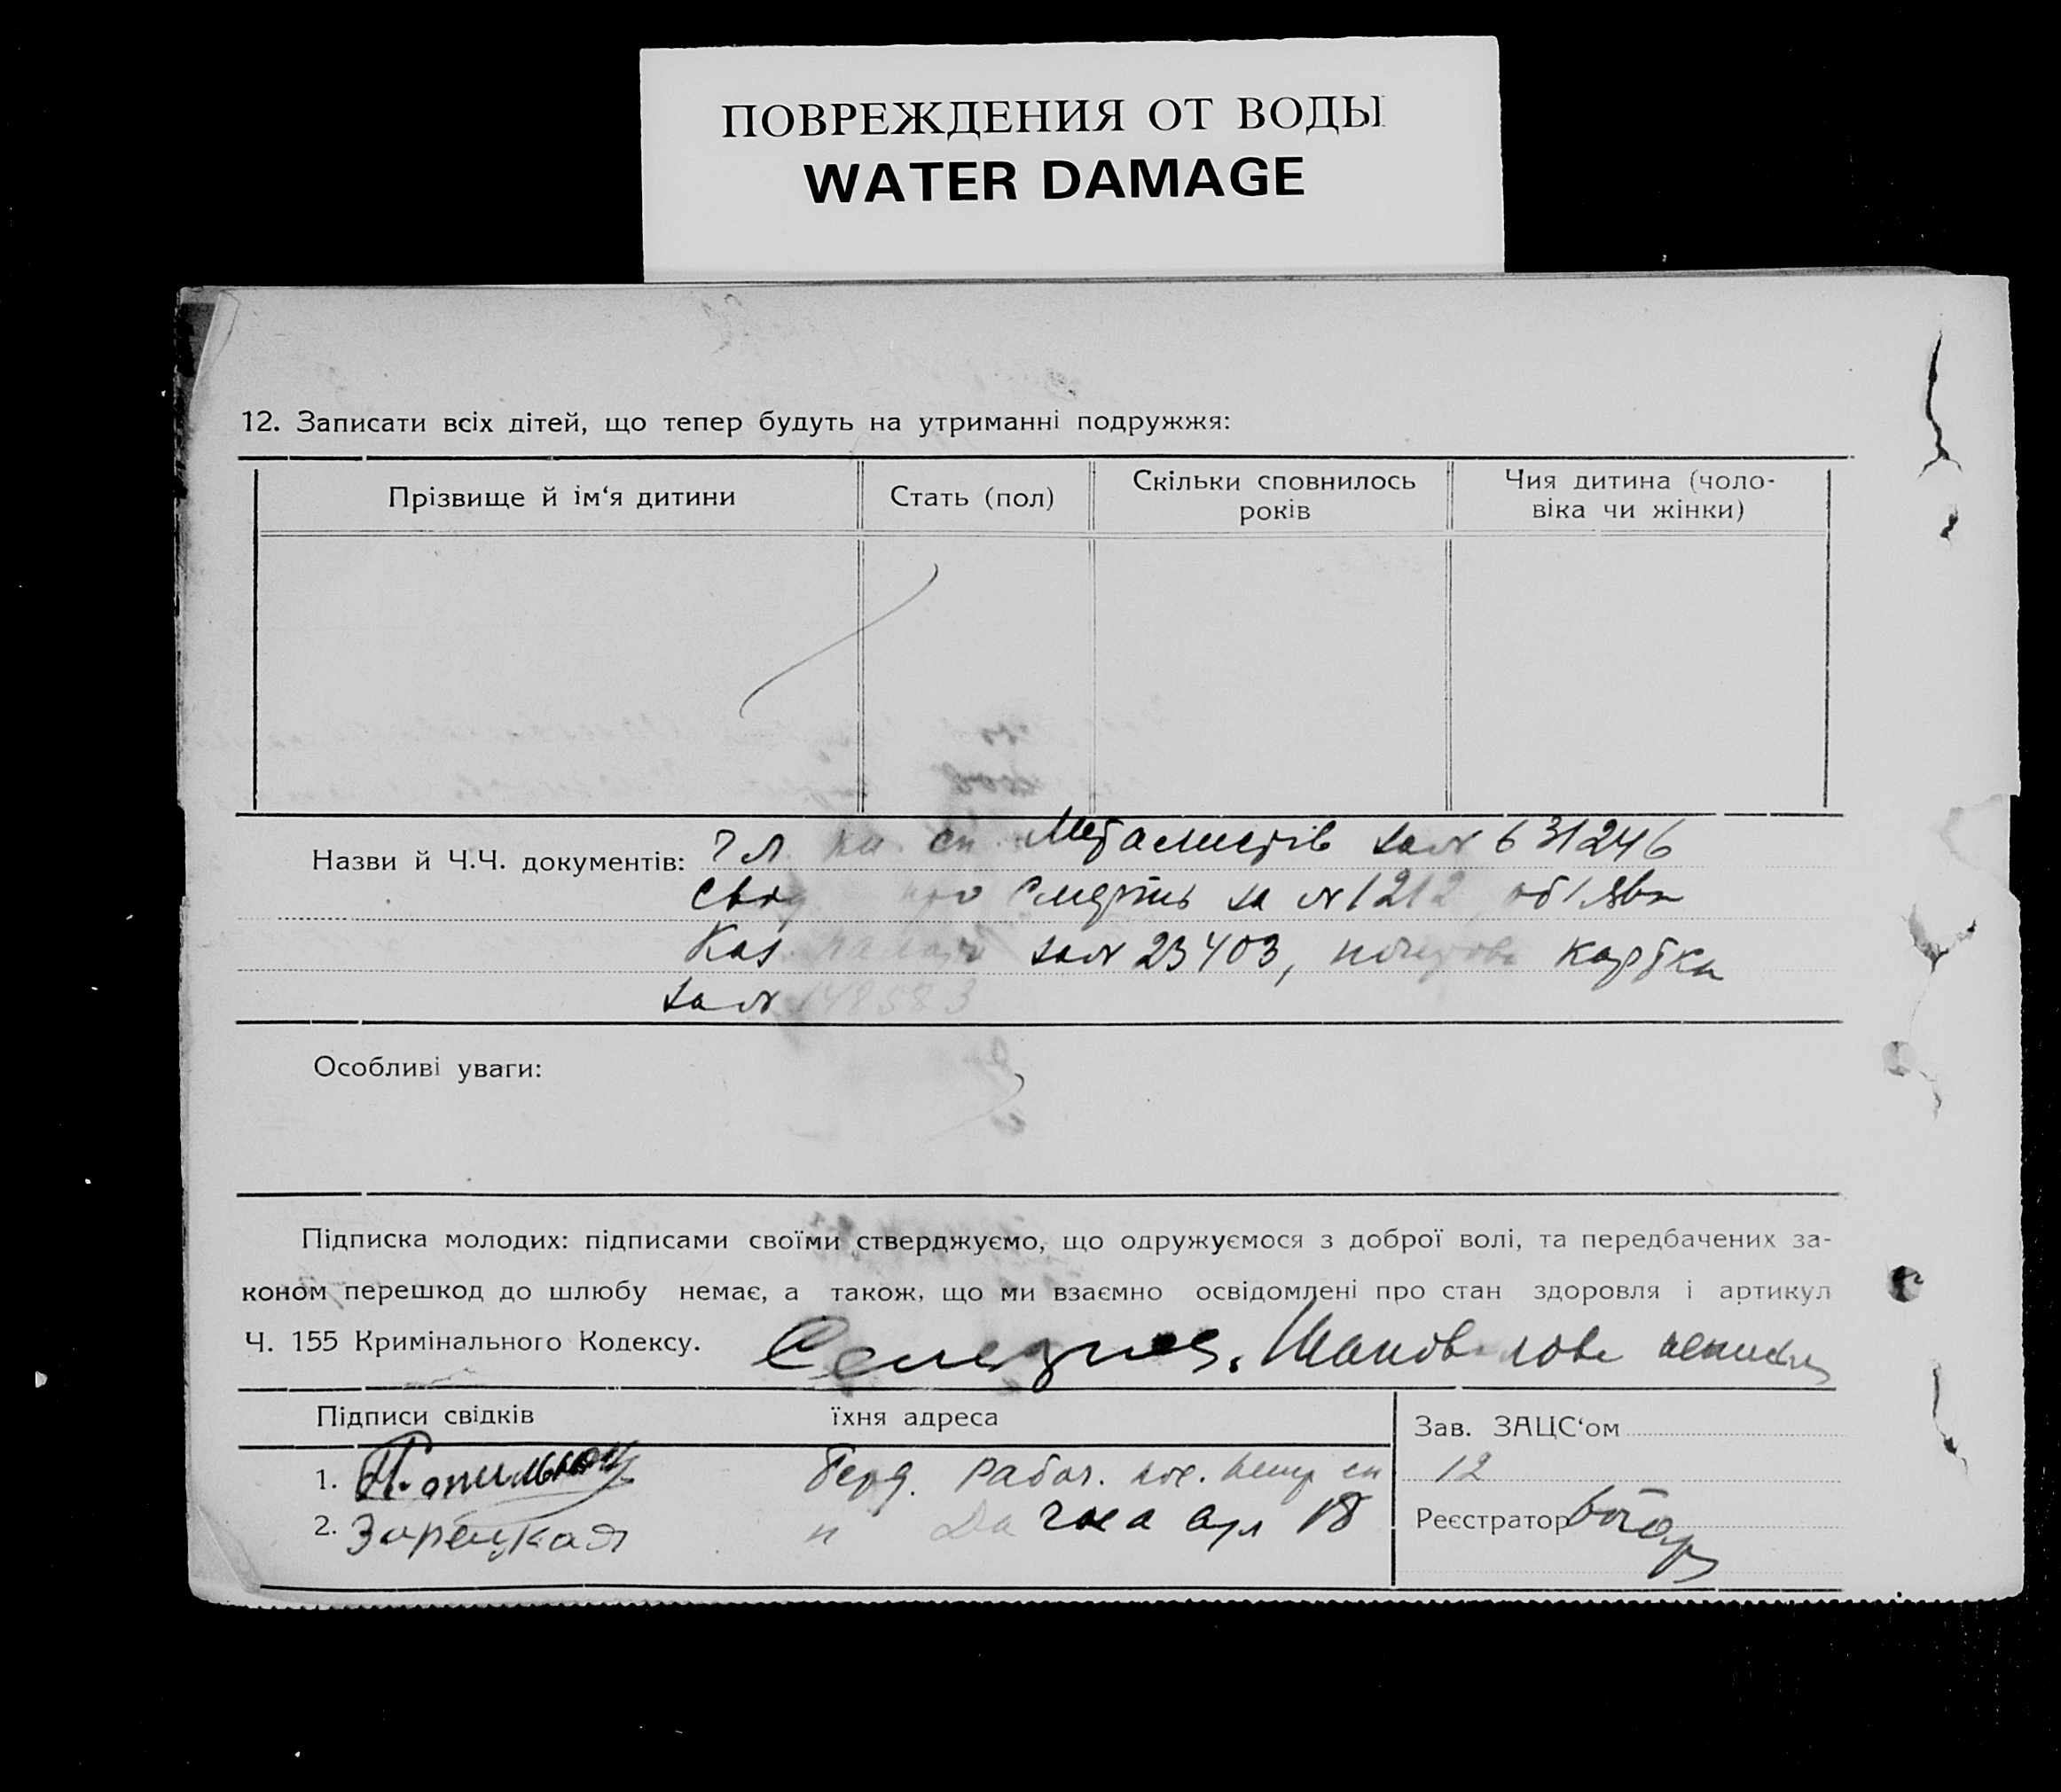 ПОВРЕЖДЕНИЯ ОТ ВОДЫ
WATER DAMAGE
12. Записати всіх дітей, що тепер будуть на утриманні подружжя:
Прізвище й ім‘я дитини
Стать (пол)
Скільки сповнилось
років
Чия дитина (чоло-
віка чи жінки)
Назви й Ч.Ч. документів: Чл. кн. сп. Металистів за № 631246
про смерть за № 1212
за № 23403, картка
за № 148583
Особливі уваги:
Підписка молодих: підписами своїми стверджуємо, що одружуємося з доброї волі, та передбачених за-
коном перешкод до шлюбу немає, а також, що ми взаємно освідомлені про стан здоровля і артикул
Ч. 155 Кримінального Кодексу.
Підписи свідків
їхня адреса
Зав. ЗАЦС‘ом
1. Берд. Рабоч. пос.
12
2. Зарецкая 18
Реєстратор